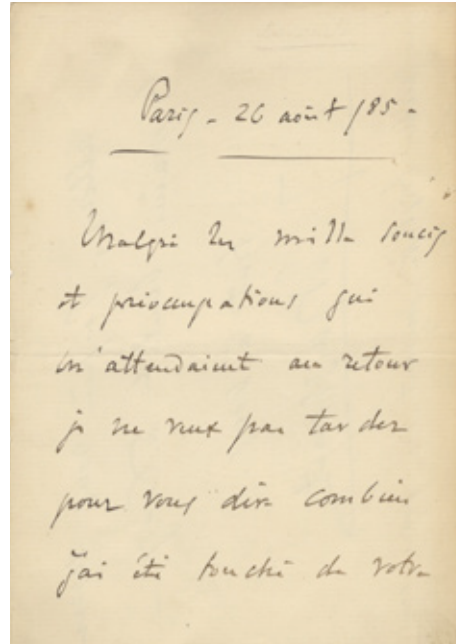 Paris - 26 août /85 -
Malgré les mille soucis
et préoccupations qui
m'attendaient au retour
je ne veux pas tarder
pour vous dire combien
j'ai été touché de votre